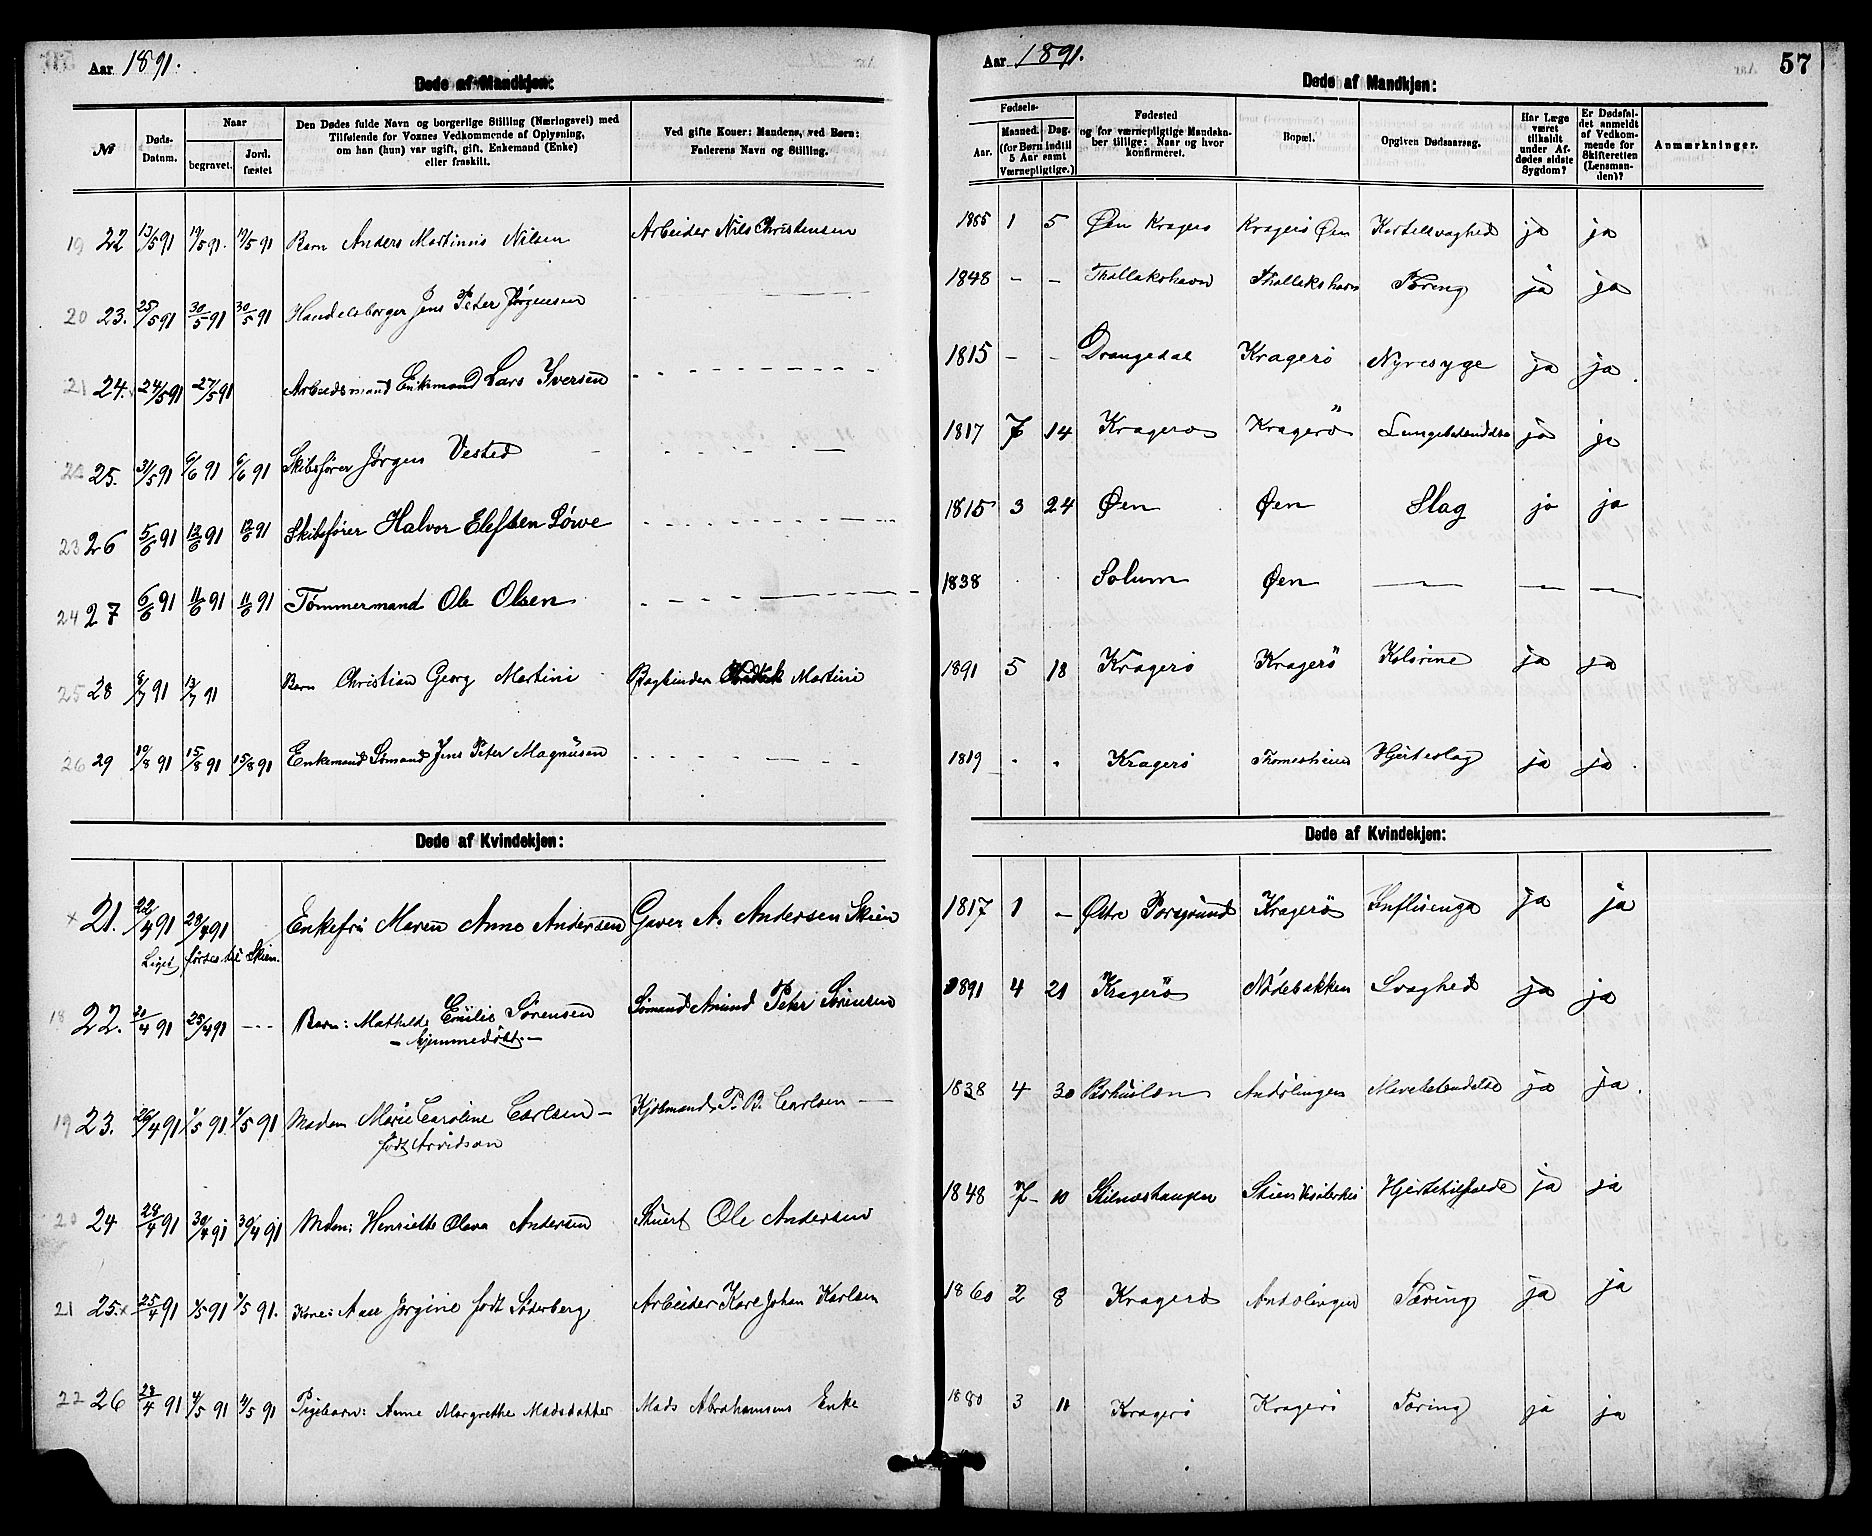 Aar 1891.
Døde af Mandkjøn:
№
Døds-Datum.
Naar
begravet.
Jord. fæstet
Den Dødes fulde Navn og borgerlige Stilling (Næringsvei) med
Tilføiende for Voxnes Vedkommende af Oplysning,
om han (hun) var ugift, gift, Enkemand (Enke)
eller fraskilt.
Ved gifte Koner: Mandens, ved Børn:
Faderens Navn og Stilling.
19 22 13/5 91 19/5 91. 19/5 91 Barn Anders Martinius Nilsen Arbeider Nils Christensen
20 23. 25/5 91 30/5 91 30/5 91 Handelsborger Jens Peter Jørgensen
21 24. 24/5 91 27/5 91 Arbeidsmand Enkmand Lars Iversen
22 25. 31/5 91 6/6 91 6/6 91 Skibsfører Jørgen Vested
23 26 5/6 91 12/6 91 12/6 91 Skibsfører Halvor Elefsen Løwe
24 27 6/6 91 11/6 91 11/6 91 Tømmermand Ole Olsen
25 28 8/7 91 13/7 91 Barn Christian Georg Martini Bogbinder Martini
26 29 10/8 91 15/8 91 15/8 91 Enkemand Sømand Jens Peter Magnusen
Døde af Kvindekjøn:
× 21. 22/4 91 28/4 91 Enkefru Maren Anne Andersen Garver A. Andersen Skien
Liget førtes til Skien.
18 22. 21/4 91 25/4 91 - - - Barn: Mathilde Emilie Sørensen Sømand Amund Peter Sørensen
- hjemmedøbt. -
19 23. 26/4 91 1/5 91 1/5 91 Madam Marie Caroline Carlsen - Kjøbmand P. B. Carlsen
født Arvidson
20 24 28/4 91 30/4 91 30/4 91 Mdm: Henriette Olava Andersen Stuert Ole Andersen
21 25.× 25/4 91 1/5 91 1/5 91. Kone: Aase Jørgine født Søderberg Arbeider Karl Johan Karlsen
22 26 28/4 91 4/5 91 4/5 91 Pigebarn: Anne Margrethe Madsdatter Mads Abrahamsens Enke
Aar 1891.
57
Døde af Mandkjøn:
Fødsels-
Aar.
Maaned. Dag.
(for Børn indtil
5 Aar samt
Værnepligtige.)
Fødested
og for værnepligtige Mandska-
ber tillige: Naar og hvor
konfirmeret.
Bopæl.
Opgiven Dødsaarsag.
Har Læge
været
tilkaldt
under Af-
dødes sidste
Sygdom?
Er Dødsfal-
det anmeldt
af Vedkom-
mende for
Skifteretten
(Lensman-
den)?
Anmærkninger.
1885 1 5 Øen Kragerø Kragerø Øen ja ja
1848 - - Thallakshavn Thallakshavn Tæring ja ja
1815 - - Drangedal Kragerø Nyresyge ja ja.
1817 7 14 Kragerø Kragerø Lungebetændelse ja ja
1815 3 24 Øen Øen Slag ja ja
1838 Solum Øen
1891 5 18 Kragerø Kragerø Kolorine ja ja
1819 Kragerø Hjerteslag ja ja.
Døde af Kvindekjøn:
1817 1 - Østre Porsgrund Kragerø Influenza ja ja
1891 4 21 Kragerø Nødebakken Svaghed ja ja
1838 4 30 Bohuslæn Andølingen Mavebetændelse ja ja.
1848 7 10 Stilnæshaugen Hjertetilfælde ja ja
1860 2 8 Kragerø Andølingen Tæring ja ja
1880 3 11 Kragerø Kragerø Tæring ja ja